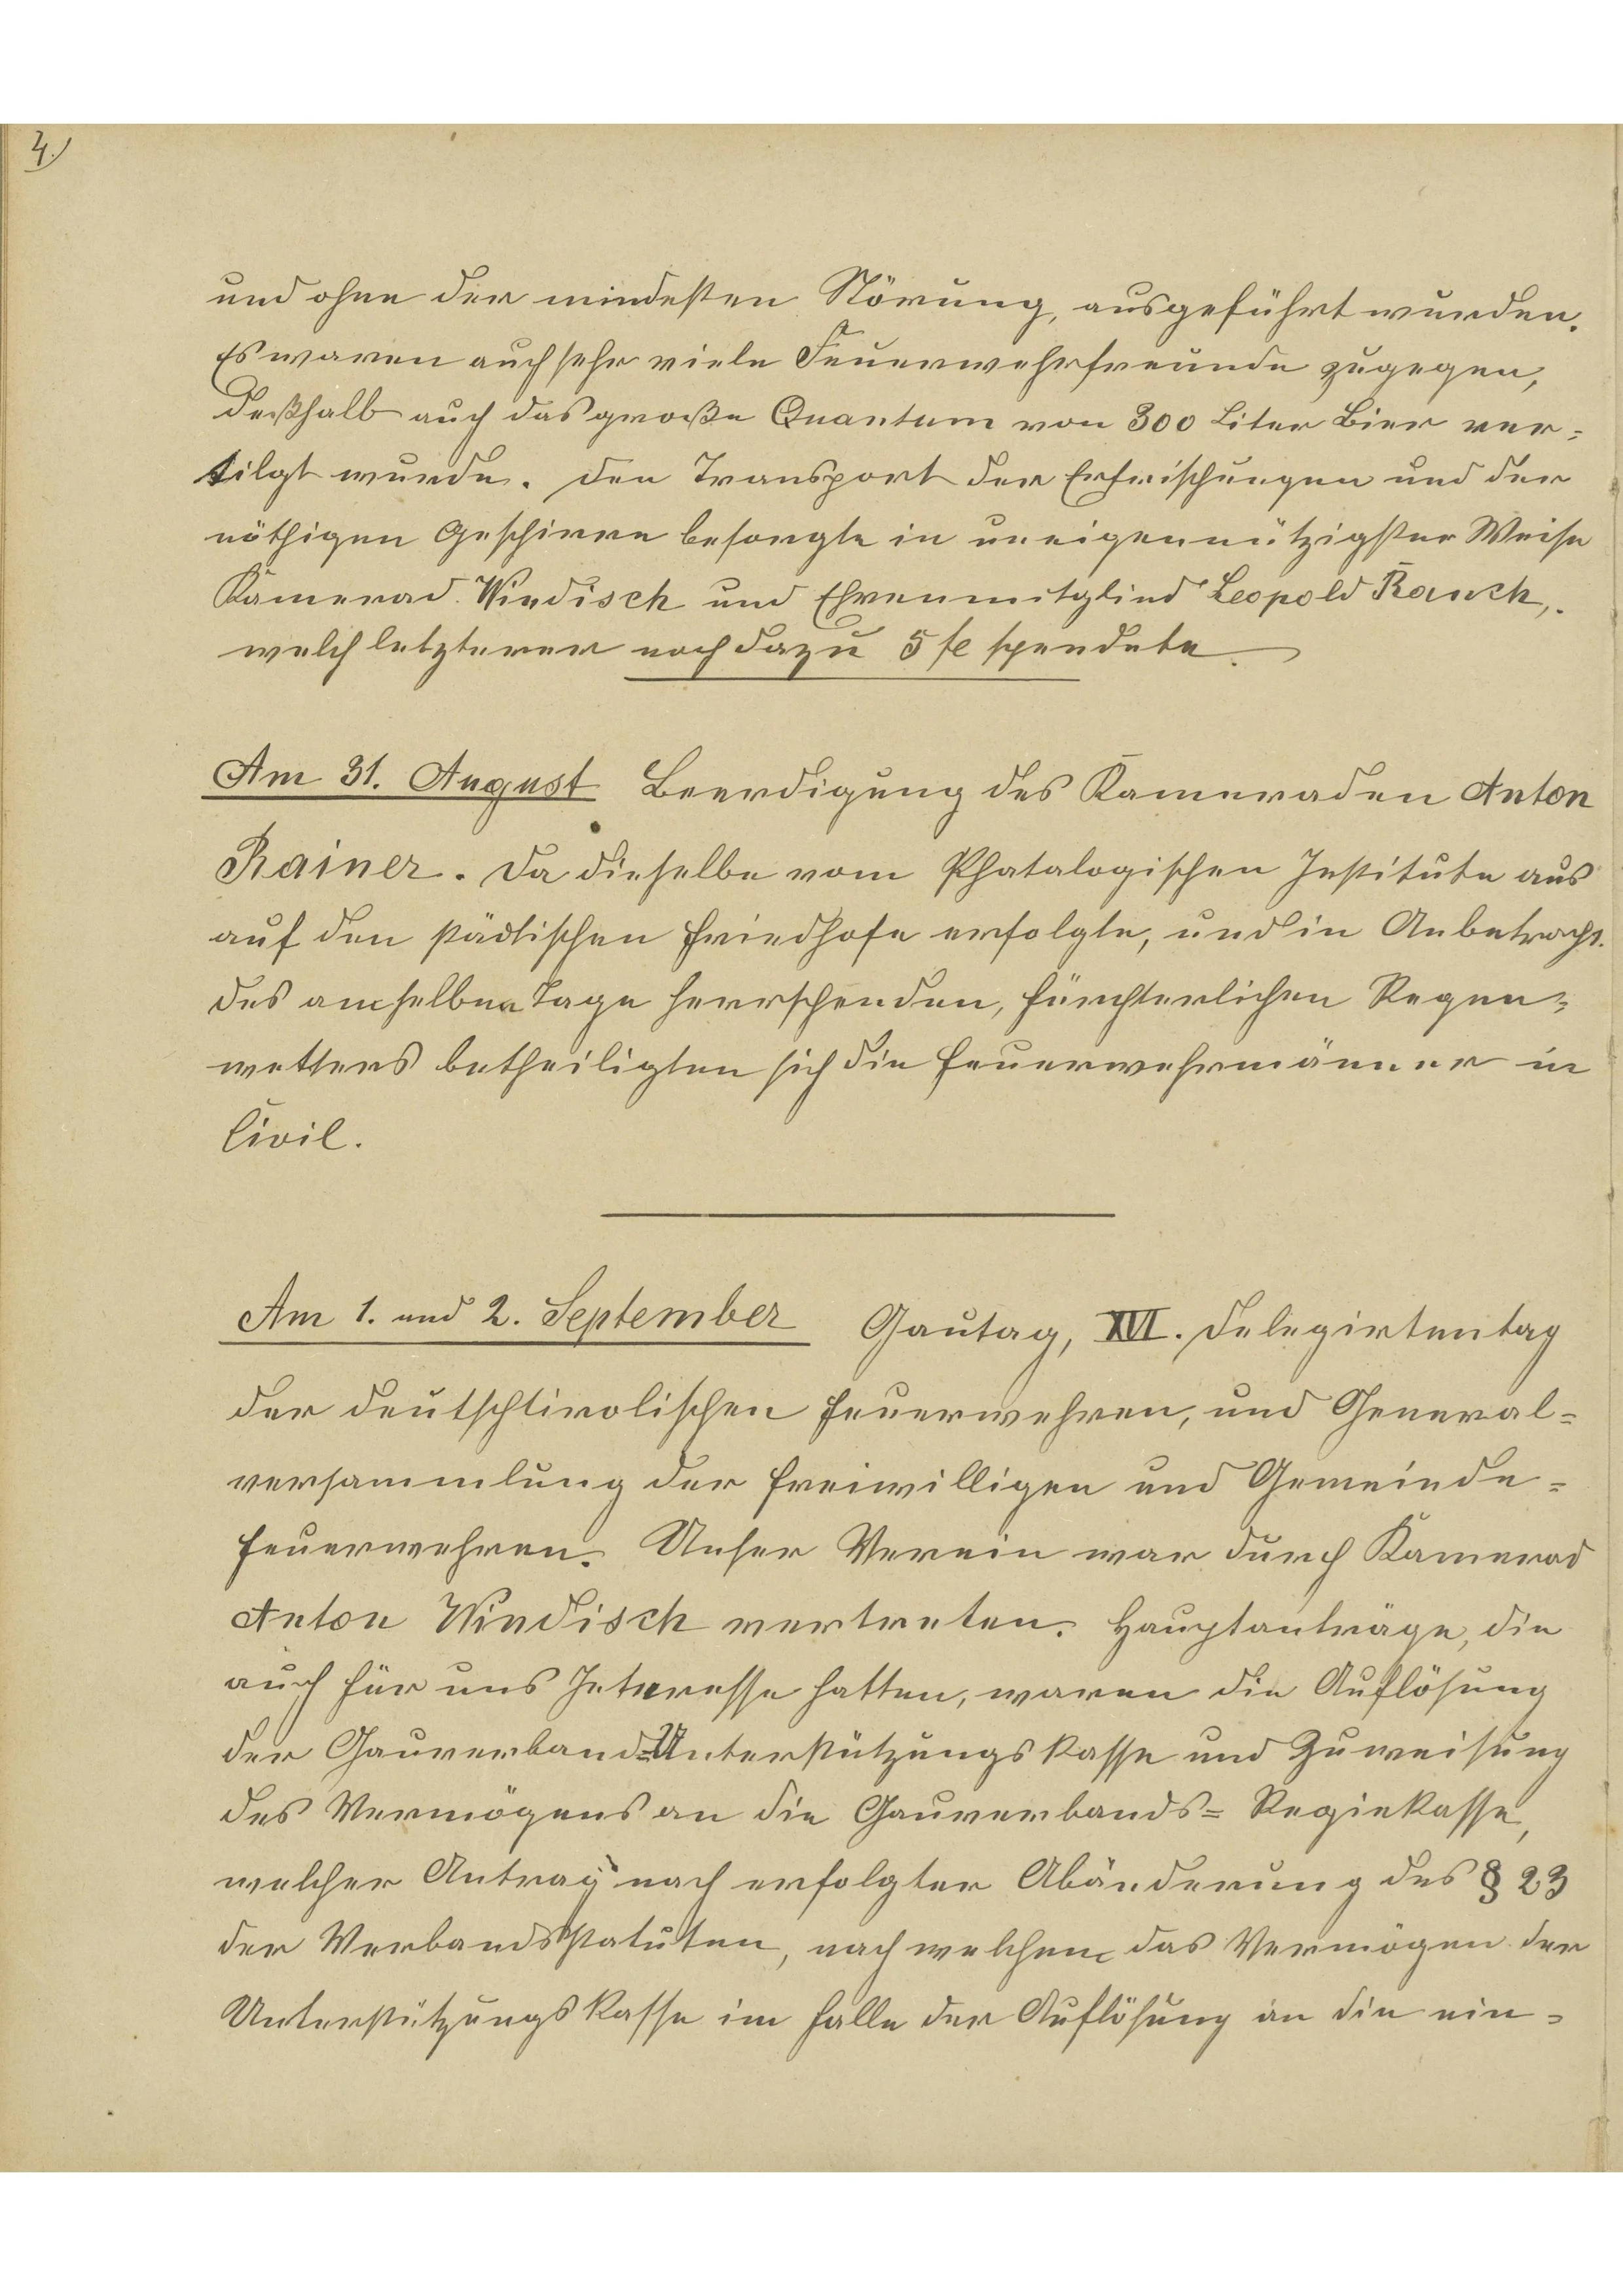 4.)
und ohne der mindesten Störung, ausgeführt wurden.
Es waren auch sehr viele Feuerwehrfreunde zugegen,
deßhalb auch das große Quantum von 300 Liter Bier ver=
tilgt wurde. Den Transport der Erfrischungen und der
nöthigen Geschirre besorgte in uneigennützigster Weise
Kamerad Windisch und Ehrenmitglied Leopold Rauch,
welch letzterer noch dazu 5 fl spendete.
Am 31. August Beerdigung des Kameraden Anton
Rainer. Da dieselbe vom Phatalogischen Institute aus
auf den städtischen Friedhofe erfolgte, und in Anbetracht
des amselben Tage herrschenden, fürchterlichen Regen=
wetters betheiligten sich die Feuerwehrmänner in
Civil.
Am 1. und 2. September Gautag, XVI. Delegirtentag
der deutschtirolischen Feuerwehren, und General=
versammlung der freiwilligen und Gemeinde=
feuerwehren. Unser Verein war durch Kamerad
Anton Windisch vertreten. Hauptanträge, die
auch für uns Interesse hatten, waren die Auflösung
der Gauverband=Unterstützungskasse und Zuweisung
des Vermögens an die Gauverbands= Regiekasse,
welcher Antrag nach erfolgter Abänderung des § 23
der Verbandsstatuten, nach welchem das Vermögen der
Unterstützungskasse im Falle der Auflösung an die ein=